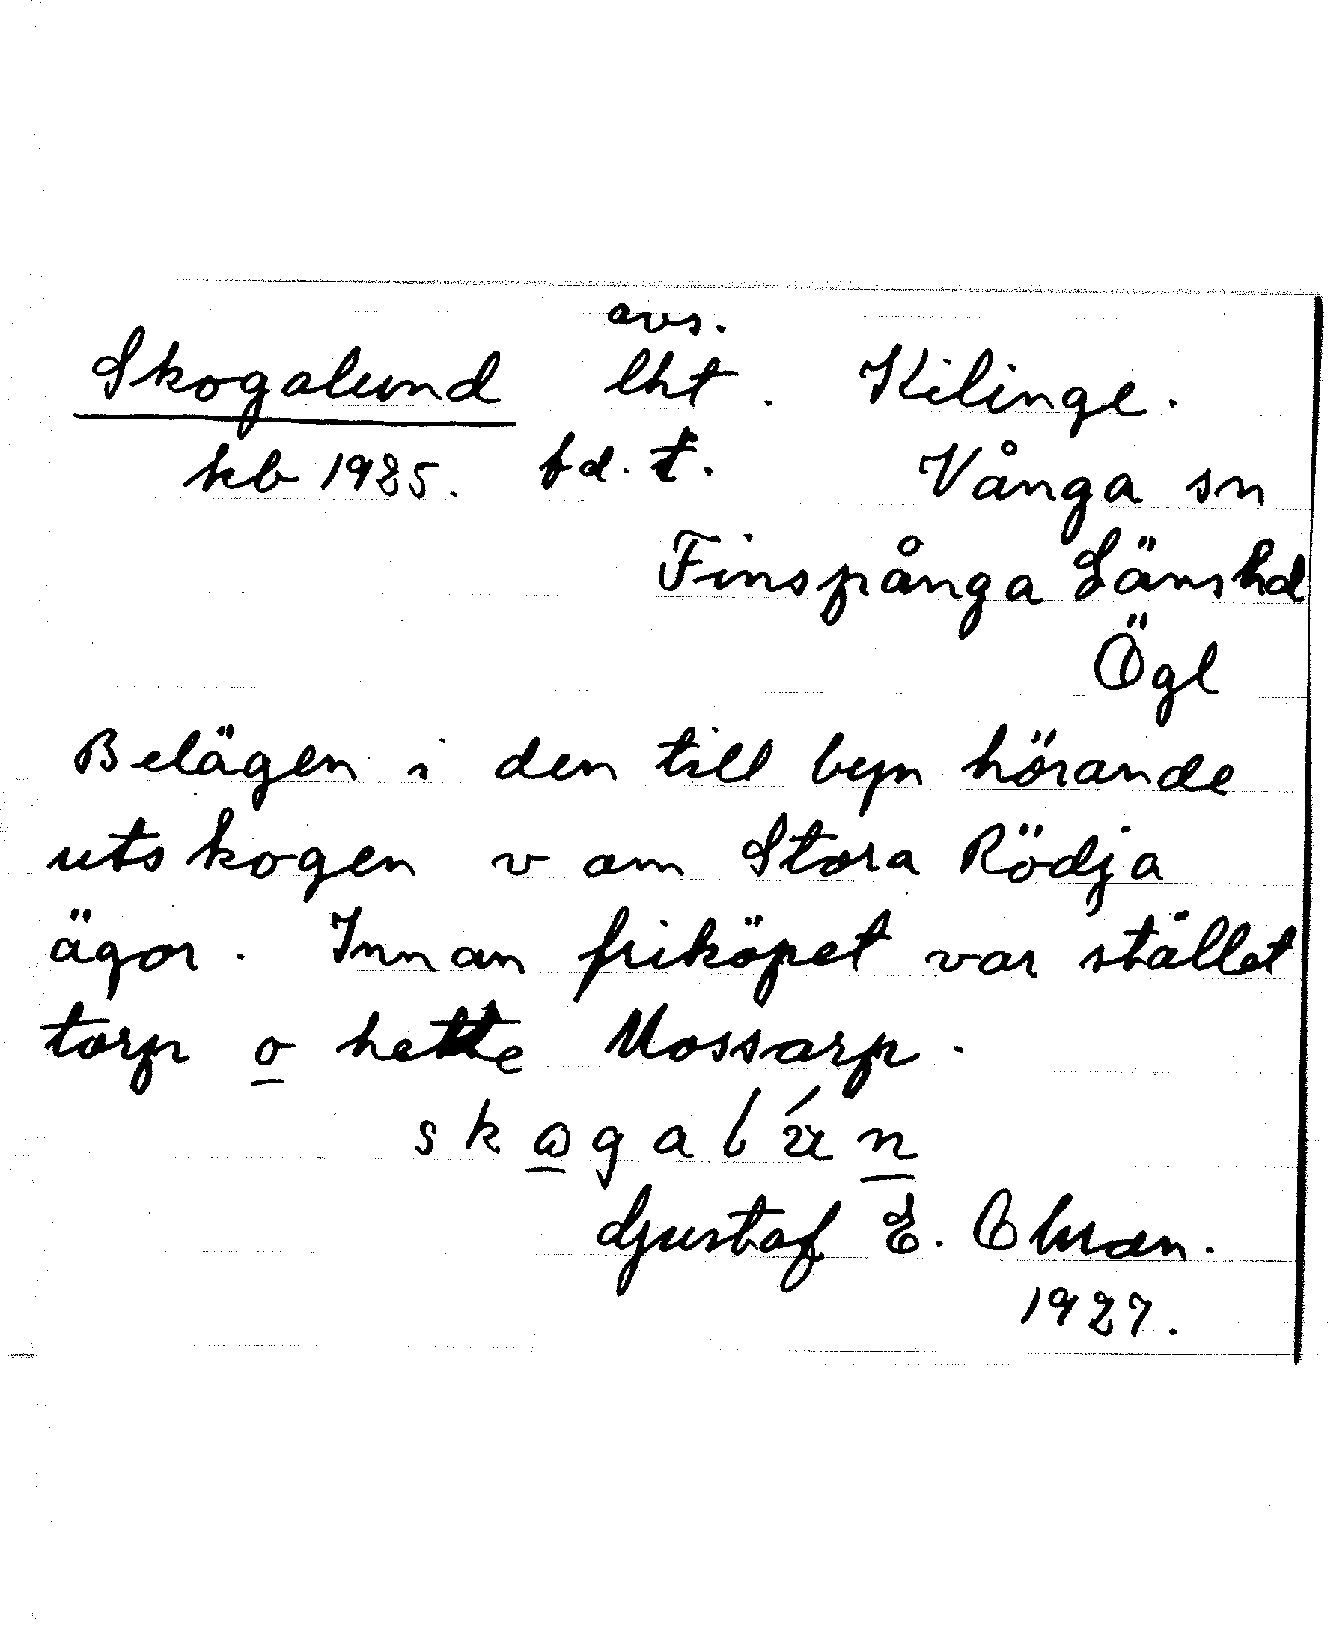 avs.
Skogalund lht. Kilinge.
kb 1925. fd. t. Vånga sn
Finspånga Länshd
Ögl
Belägen i den till byn hörande
utskogen v om Stora Rödja
ägor. Innan friköpet var stället
torp o hette Mossarp.
skogalún
Gustaf E.
1927.